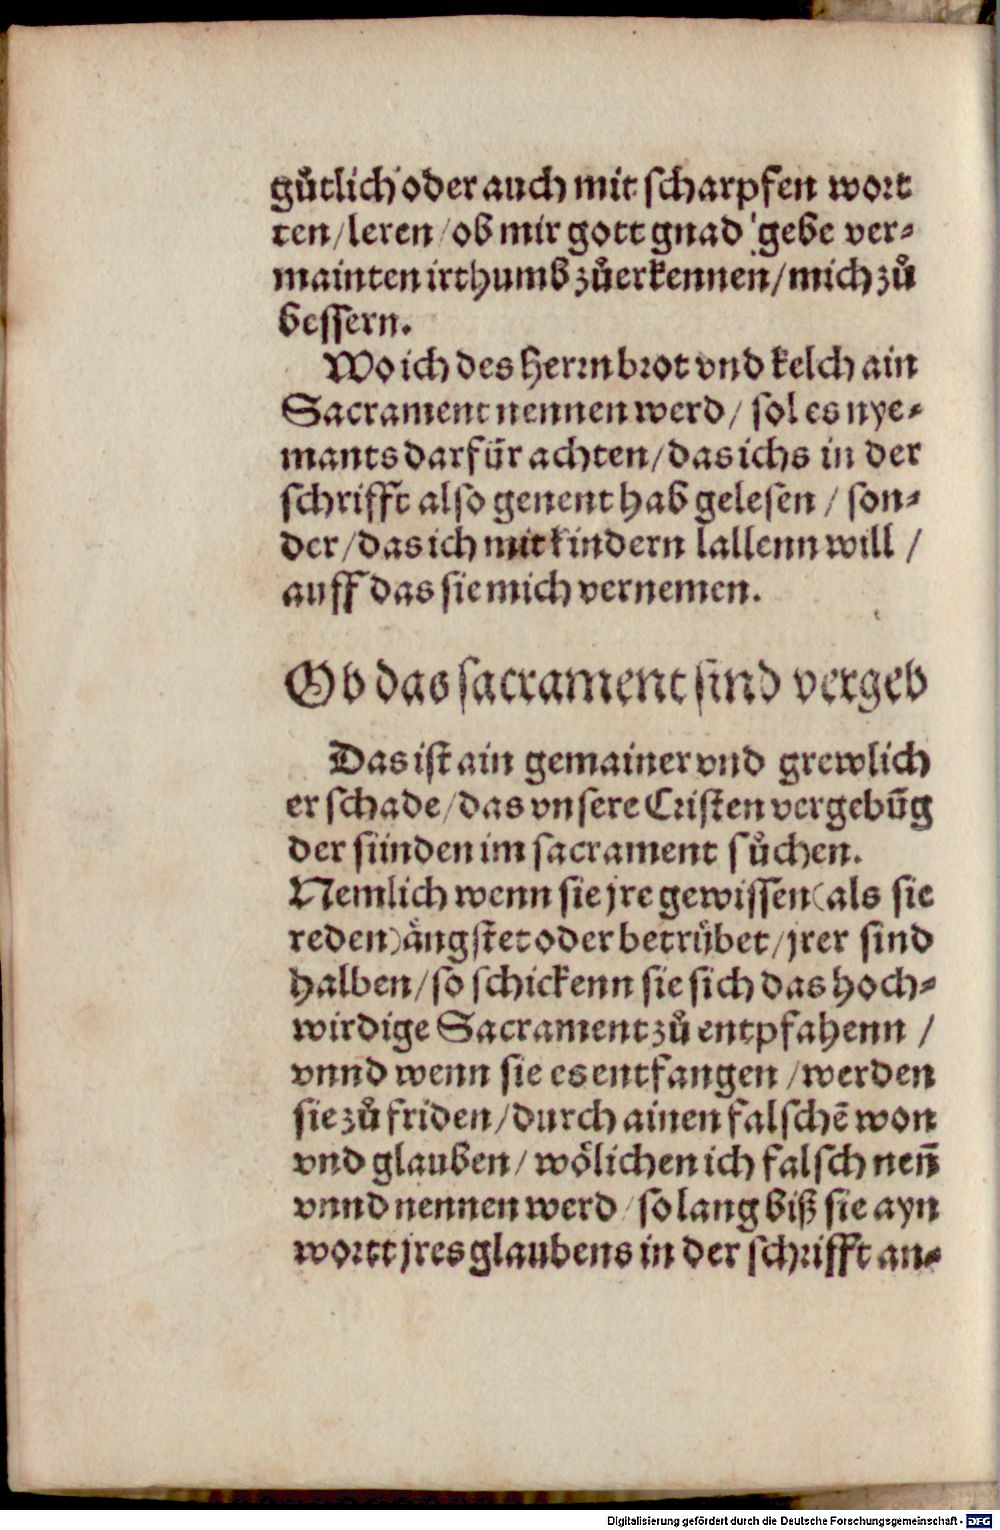 guͤtlich oder auch mit scharpfen wort
ten/leren/ob mir gott gnad gebe ver⸗
mainten irthumb zuͦerkennen/mich zuͦ
bessern.
Wo ich des Herrn brot vnd kelch ain
Sacrament nennen werd/ sol es nye⸗
mants darfür achten/das ichs in der
schrifft also genent hab gelesen / son⸗
der/das ich mit kindern lallenn will /
auff das sie mich vernemen.
Ob das sacrament sind vergeb
Das ist ain gemainer vnd grewlich
er schade/das vnsere Cristen vergebūg
der sünden im sacrament suͦchen.
Nemlich wenn sie jre gewissen(als sie
reden)ängstet oder betrübet/jrer sind
halben/so schickenn sie sich das hoch⸗
wirdige Sacrament zuͦ entpfahenn /
vnnd wenn sie es entfangen /werden
sie zuͦ friden/durch ainen falschē won
vnd glauben/ woͤlichen ich falsch nen̄
vnnd nennen werd /so lang biß sie ayn
wortt jres glaubens in der schrifft an⸗
Digitalisierung gefördert durch die Deutsche Forschungsgemeinschaft - DFG